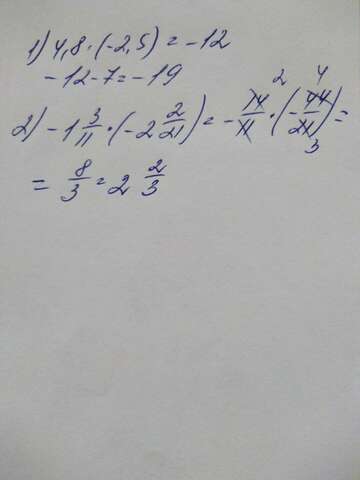 1) 4,8 · (-2,5) = -12
-12-7 = -19
2) -1 3/11 · (-2 2/21) = -14/11 · (-44/21) =
2 4
3
= 8/3 = 2 2/3